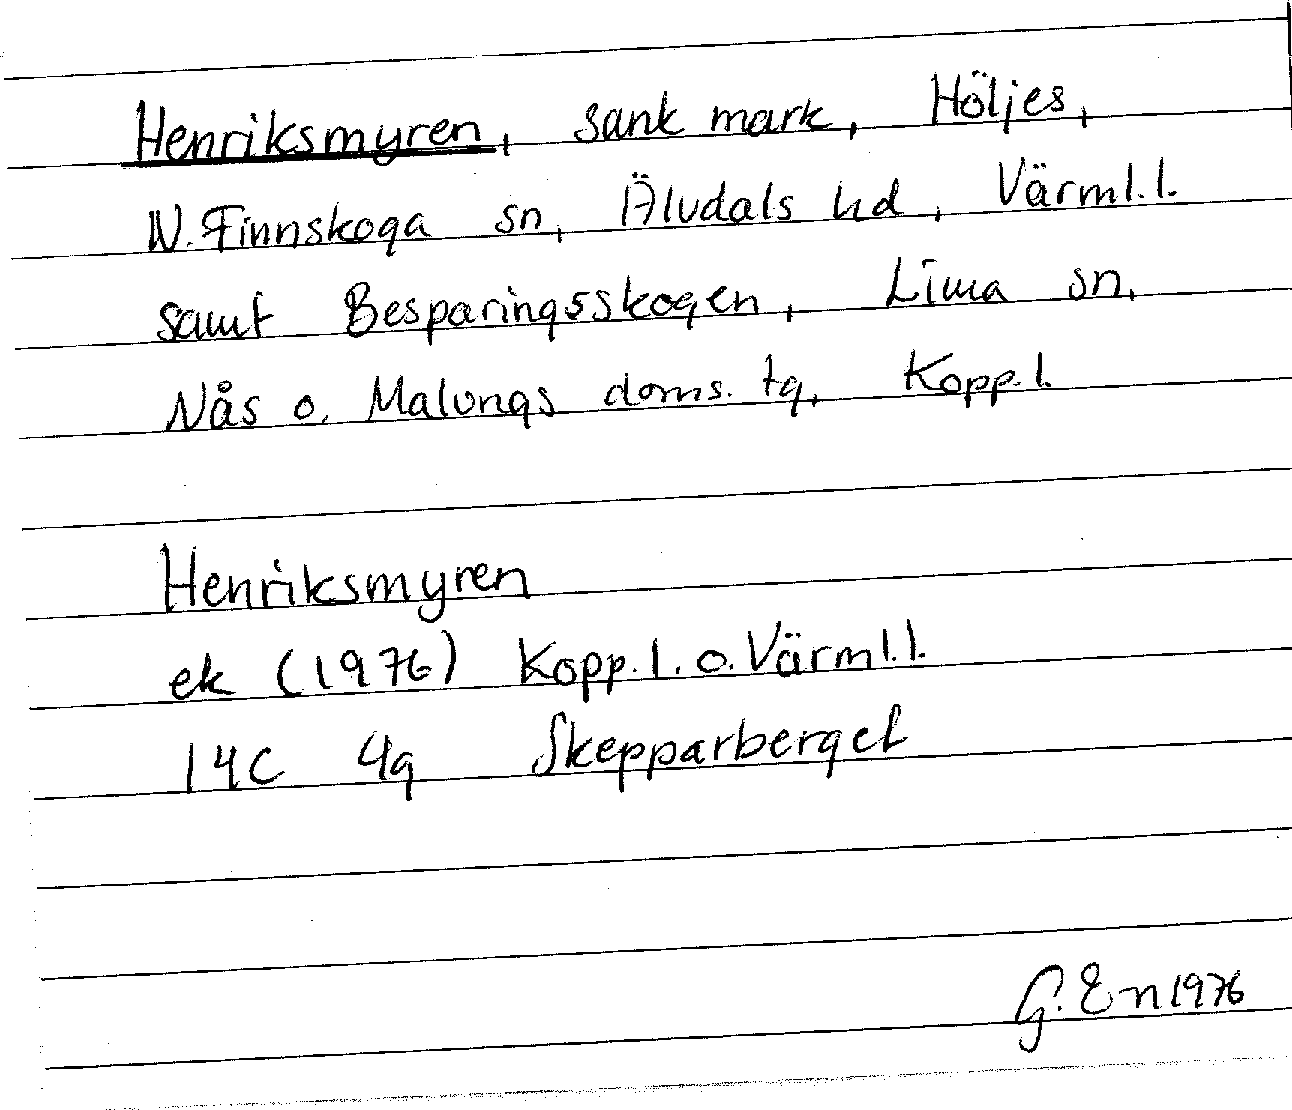 Henriksmyren, sank mark, Höljes,
N. Finnskoga sn, Älvdals hd, Värml. l.
samt Besparingsskogen, Lima sn,
Nås o. Malungs doms. tg, Kopp. l.
Henriksmyren
ek (1976) Kopp. l. o. Värml. l.
14C 4g Skepparberget
G. E-n 1976